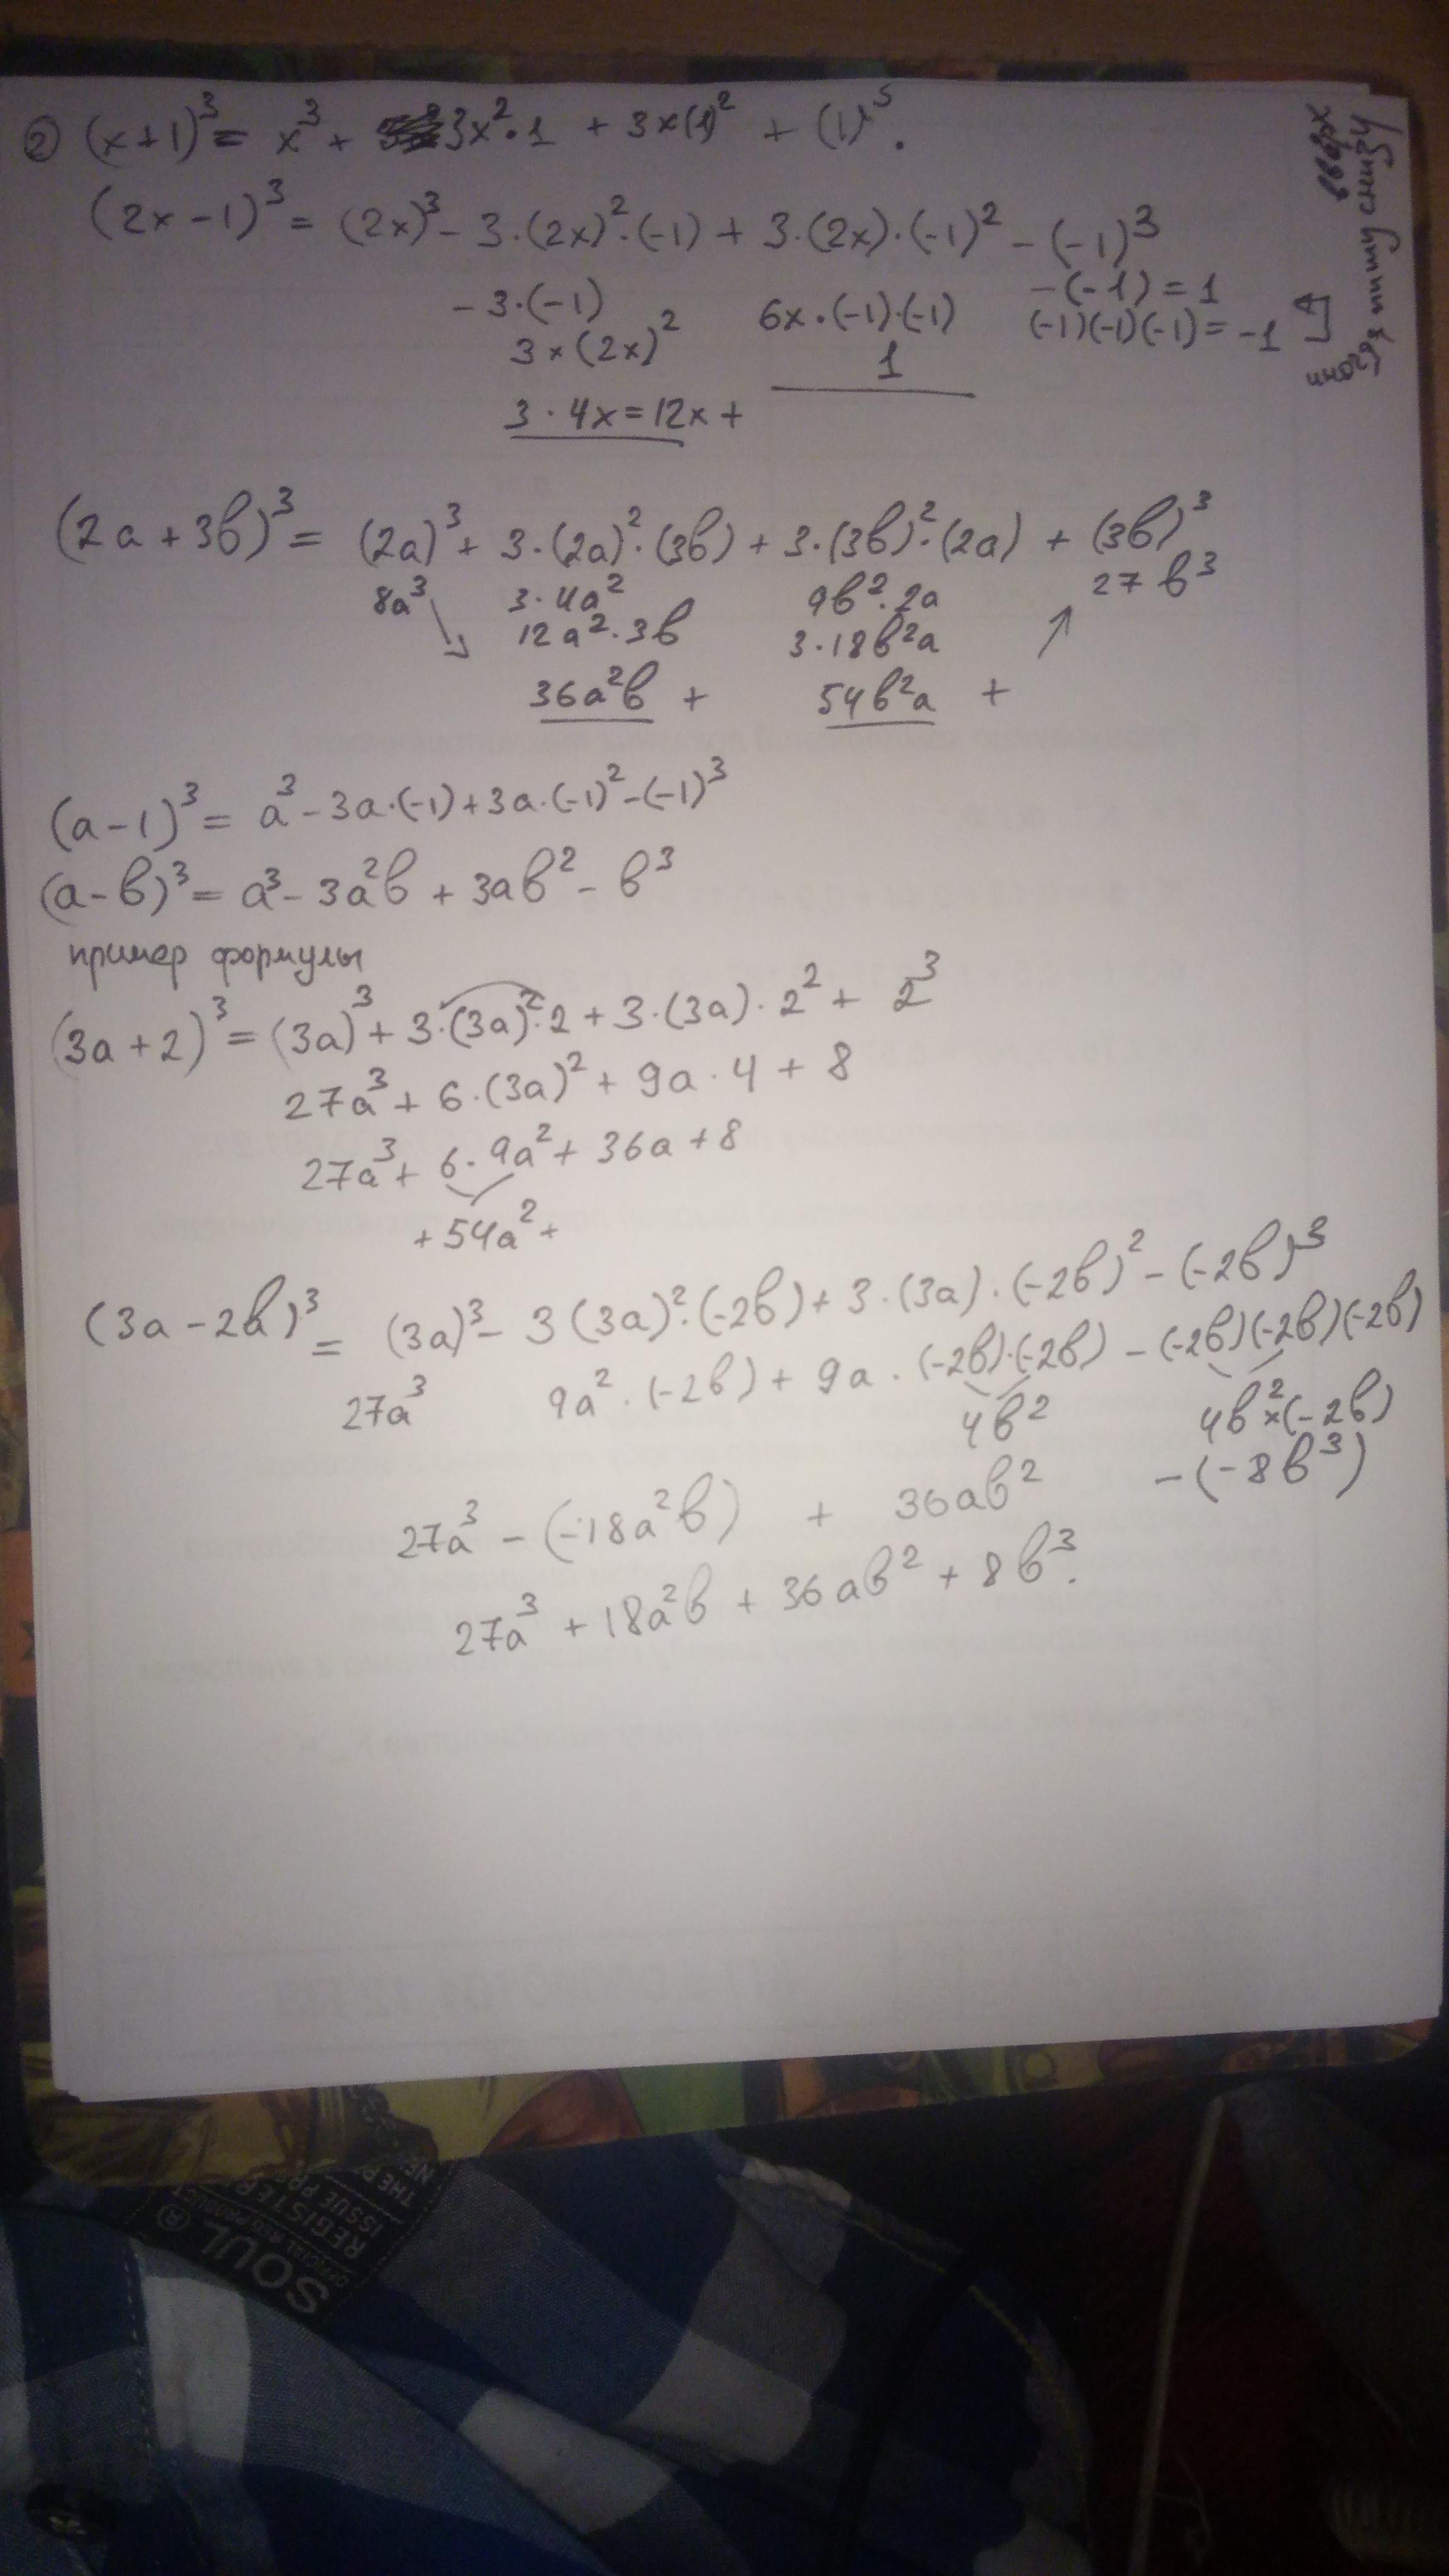 ② (x+1)³ = x³ + 3x²·1 + 3x(1)² + (1)³.
(2x-1)³ = (2x)³ - 3·(2x)²·(-1) + 3·(2x)·(-1)² - (-1)³
-3·(-1) 6x·(-1)·(-1) -(-1) = 1
3×(2x)² 1 (-1)(-1)(-1) = -1
3·4x = 12x +
иногда пишу снизу
вверх
(2a+3b)³ = (2a)³ + 3·(2a)²·(3b) + 3·(3b)²·(2a) + (3b)³
8a³ 3·4a² 9b²·2a 27b³
12a²·3b 3·18b²a
36a²b + 54b²a +
(a-1)³ = a³ - 3a·(-1) + 3a·(-1)² - (-1)³
(a-b)³ = a³ - 3a²b + 3ab² - b³
пример формулы
(3a+2)³ = (3a)³ + 3·(3a)²·2 + 3·(3a)·2² + 2³
27a³ + 6·(3a)² + 9a·4 + 8
27a³ + 6·9a² + 36a + 8
+ 54a² +
(3a-2b)³ = (3a)³ - 3(3a)²·(-2b) + 3·(3a)·(-2b)² - (-2b)³
27a³ 9a²·(-2b) + 9a·(-2b)·(-2b) - (-2b)(-2b)(-2b)
4b² 4b²×(-2b)
27a³ - (-18a²b) + 36ab² -(-8b³)
27a³ + 18a²b + 36ab² + 8b³.
SOUL ®
REGISTER
ISSUE PR
THE P
NE